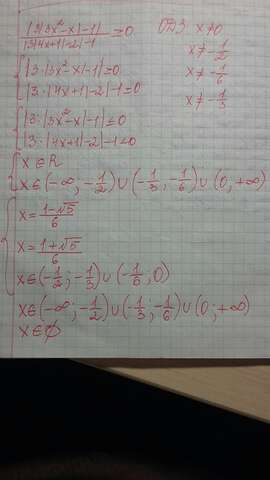 |3|3x²-x|-1| / |3|4x+1|-2|-1 ≥0 ОДЗ: x≠0
x≠-1/2
x≠-1/6
x≠-1/3
{ |3·|3x²-x|-1|≥0
|3·|4x+1|-2|-1≥0
{ |3·|3x²-x|-1|≤0
|3·|4x+1|-2|-1<0
{ x∈R
x∈(-∞; -1/2)∪(-1/3; -1/6)∪(0; +∞)
{ x=(1-√5)/6
x=(1+√5)/6
x∈(-1/2; -1/3)∪(-1/6; 0)
x∈(-∞; -1/2)∪(-1/3; -1/6)∪(0; +∞)
x∈∅